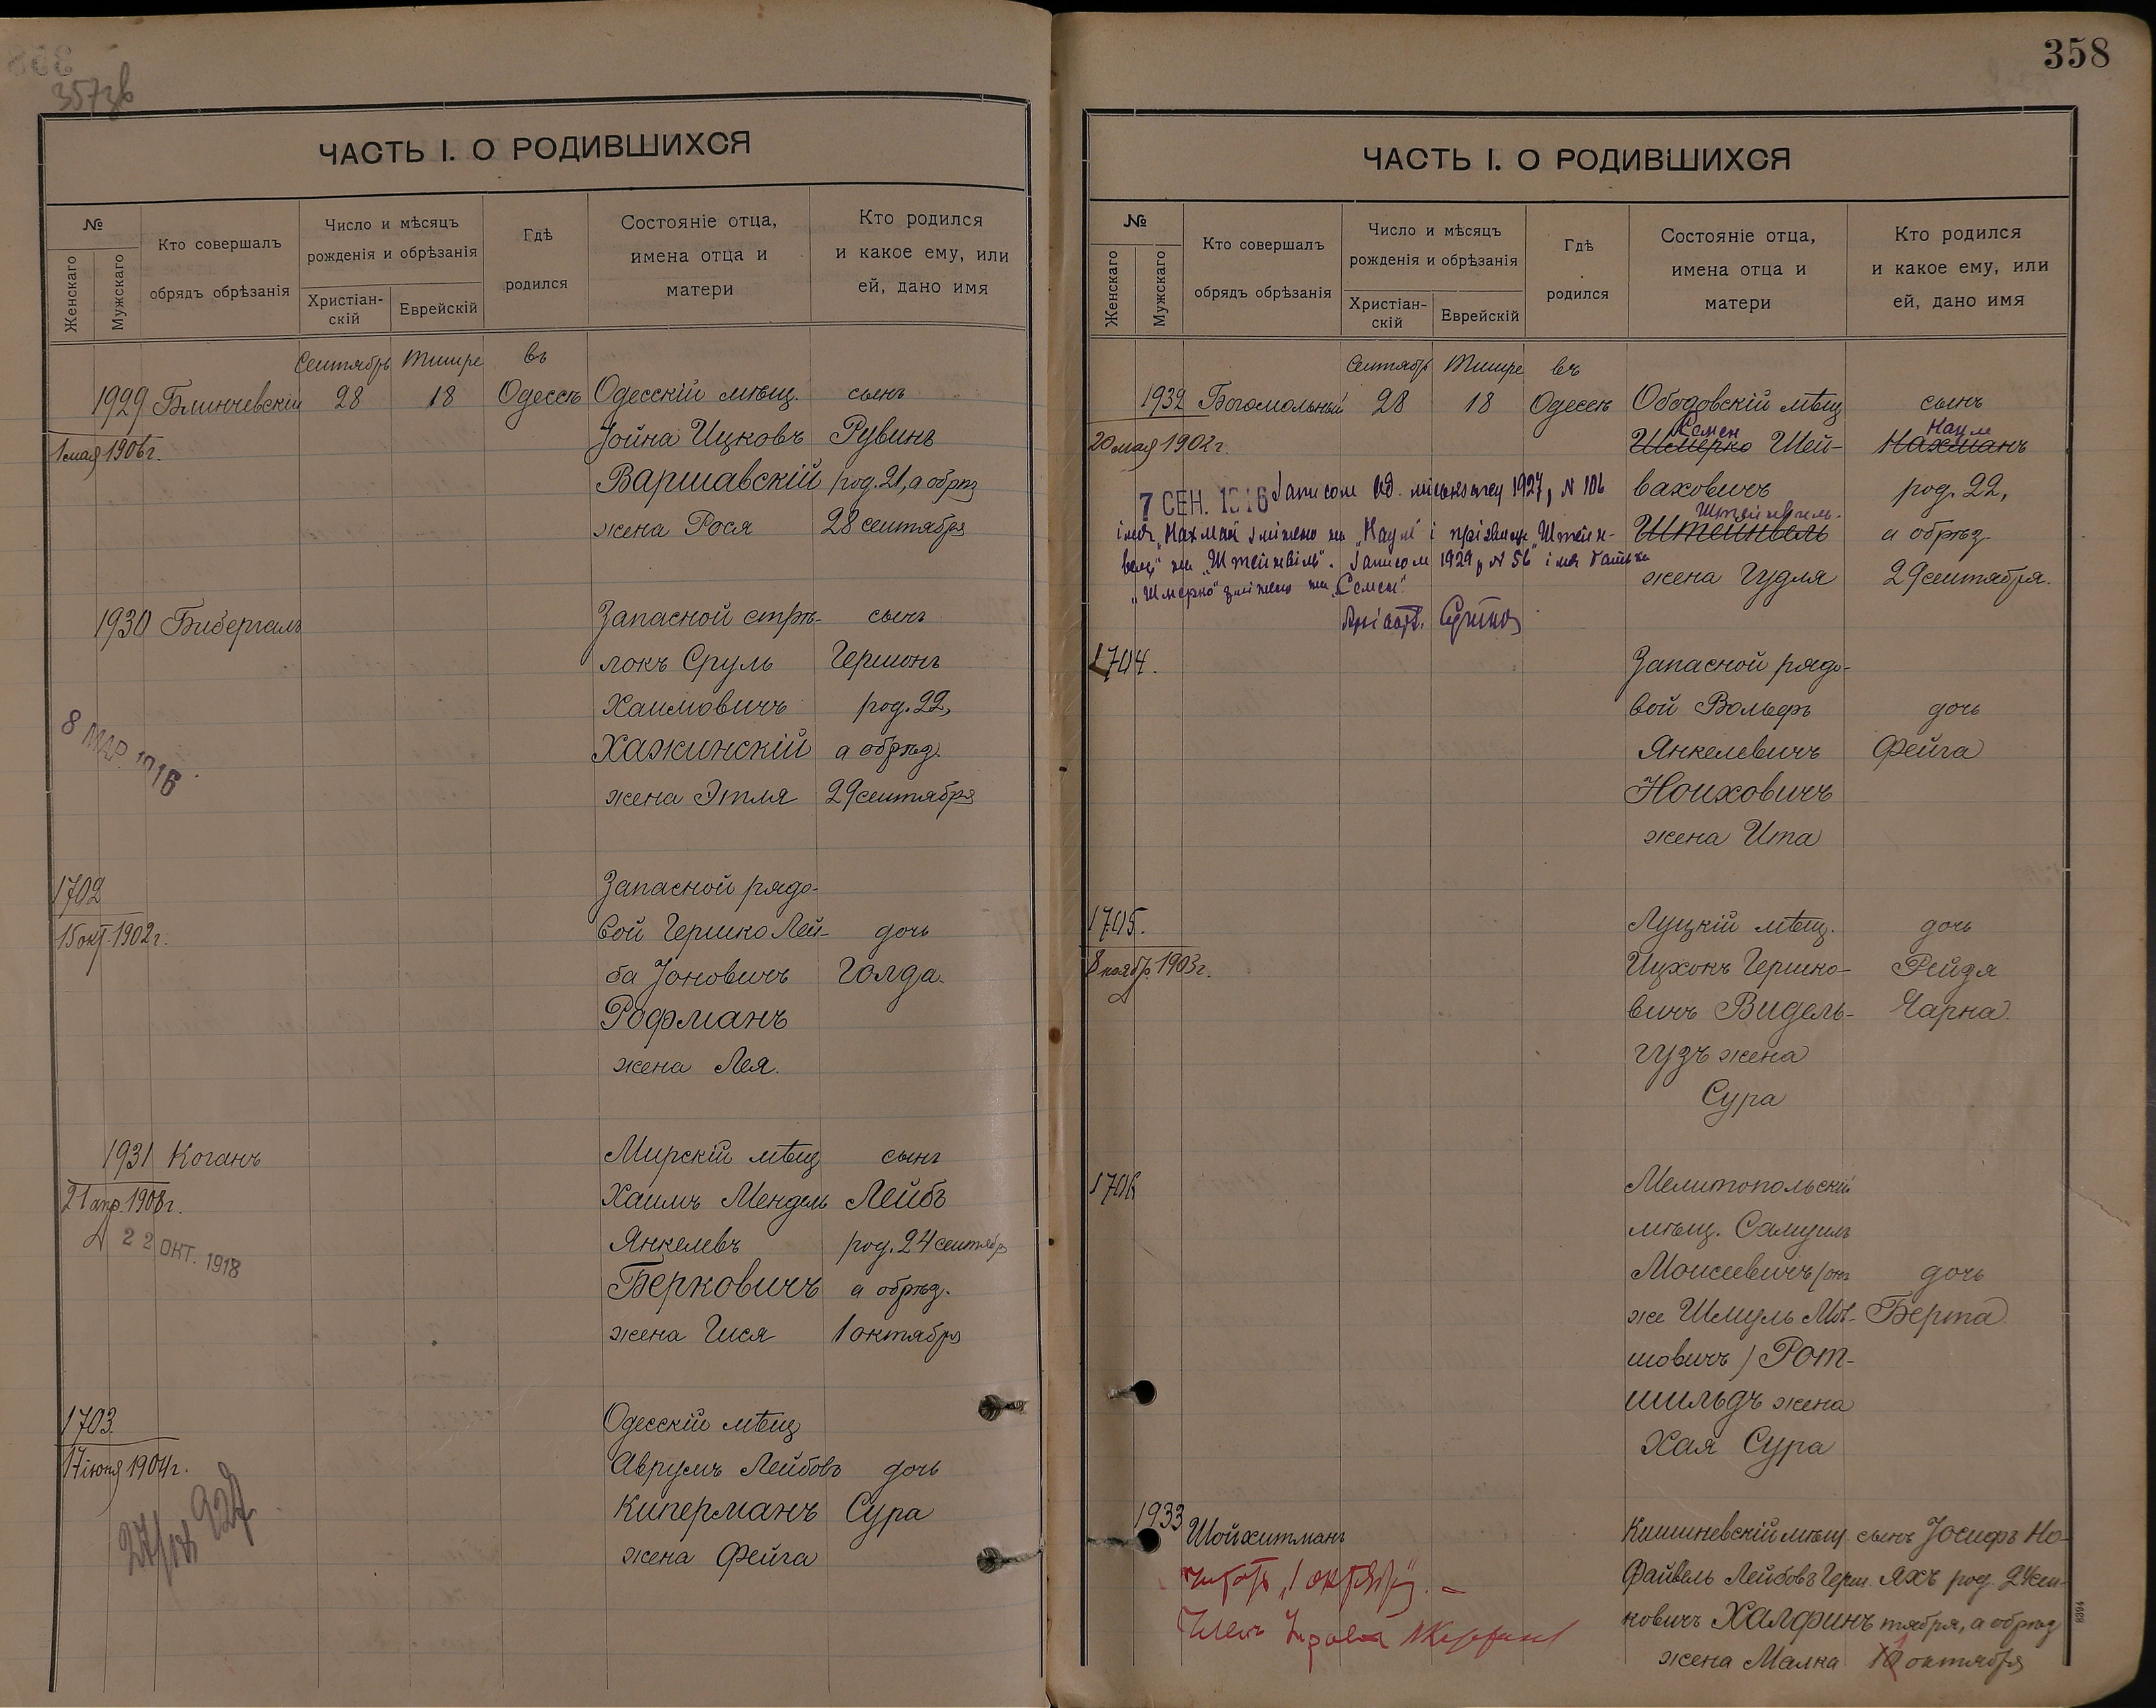 357зв
ЧАСТЬ I. О РОДИВШИХСЯ
№
Женскаго
Мужскаго
Кто совершалъ
обрядъ обрѣзанія
Число и мѣсяцъ
рожденія и обрѣзанія
Христіан-
скій
Еврейскій
Гдѣ
родился
Состояніе отца,
имена отца и
матери
Кто родился
и какое ему, или
ей, дано имя
Сентябрь Тишре въ
1929 Блинчевскій 28 18 Одессѣ Одесскій мѣщ. сынъ
1 мая 1906 г. Іойна Ицковъ Рувинъ
Варшавскій род. 21, а обрѣз
жена Рося 28 сентября
1930 Бибергалъ Запасной стрѣ- сынъ
локъ Сруль Гершонъ
Хаимовичъ род. 22,
8 МАР 1916
Хажинскій а обрѣз.
жена Этля 29 сентября
1702 Запасной рядо-
15 окт. 1902 г. вой Гершко Лей- дочь
ба Іоновичъ Голда.
Рофманъ
жена Лея.
1931 Коганъ Мирскій мѣщ сынъ
21 апр 1908 г. Хаимъ Мендель Лейбъ
22 ОКТ. 1918
Янкелевъ род. 24 сентябр
Берковичъ а обрѣз.
жена Гися 1 октября
1703 Одесскій мѣщ
17 іюня 1904 г. Аврумъ Лейбовъ дочь
Киперманъ Сура
жена Фейга
358
ЧАСТЬ I. О РОДИВШИХСЯ
№
Женскаго
Мужскаго
Кто совершалъ
обрядъ обрѣзанія
Число и мѣсяцъ
рожденія и обрѣзанія
Христіан-
скій
Еврейскій
Гдѣ
родился
Состояніе отца,
имена отца и
матери
Кто родился
и какое ему, или
ей, дано имя
Сентябрь Тишре въ
1932 Богомольный 28 18 Одессѣ Ободовскій мѣщ сынъ
Семен Наум
20 мая 1902 г. Шмерко Шей- Нахманъ
7 СЕН. 1916 Записом 1927 р N 106 ваховичъ род. 22,
Штейнвіль
імя „Нахман" змінено на „Наум" і прізвище „Штейн- Штейнвель а обрѣз
вель" на „Штейнвіль". Записом 1929 р N 56 імя батька
жена Гудля 29 сентября.
„Шмерко" змінено на „Семен".
1704. Запасной рядо-
вой Вольфъ дочь
Янкелевичъ Фейга
Ноиховичъ
жена Ита
1705. Луцкій мѣщ. дочь
8 ноябр 1903 г. Ицхокъ Гершко- Рейзя
вичъ Видель- Чарна.
гузъ жена
Сура
1706 Мелитопольскій
мѣщ. Самуилъ
Моисеевичъ (онъ дочь
же Шмуль Мов- Берта
шовичъ) Рот-
шильдъ жена
Хая Сура
1933 Шойхитманъ Кишиневскій мѣщ сынъ Іосифъ Но-
Файвель Лейбовъ Герш яхъ род. 24 сен-
читать „1 октября". –
ковичъ Халфинъ тября, а обрѣз
жена Малка 10 октября
8394